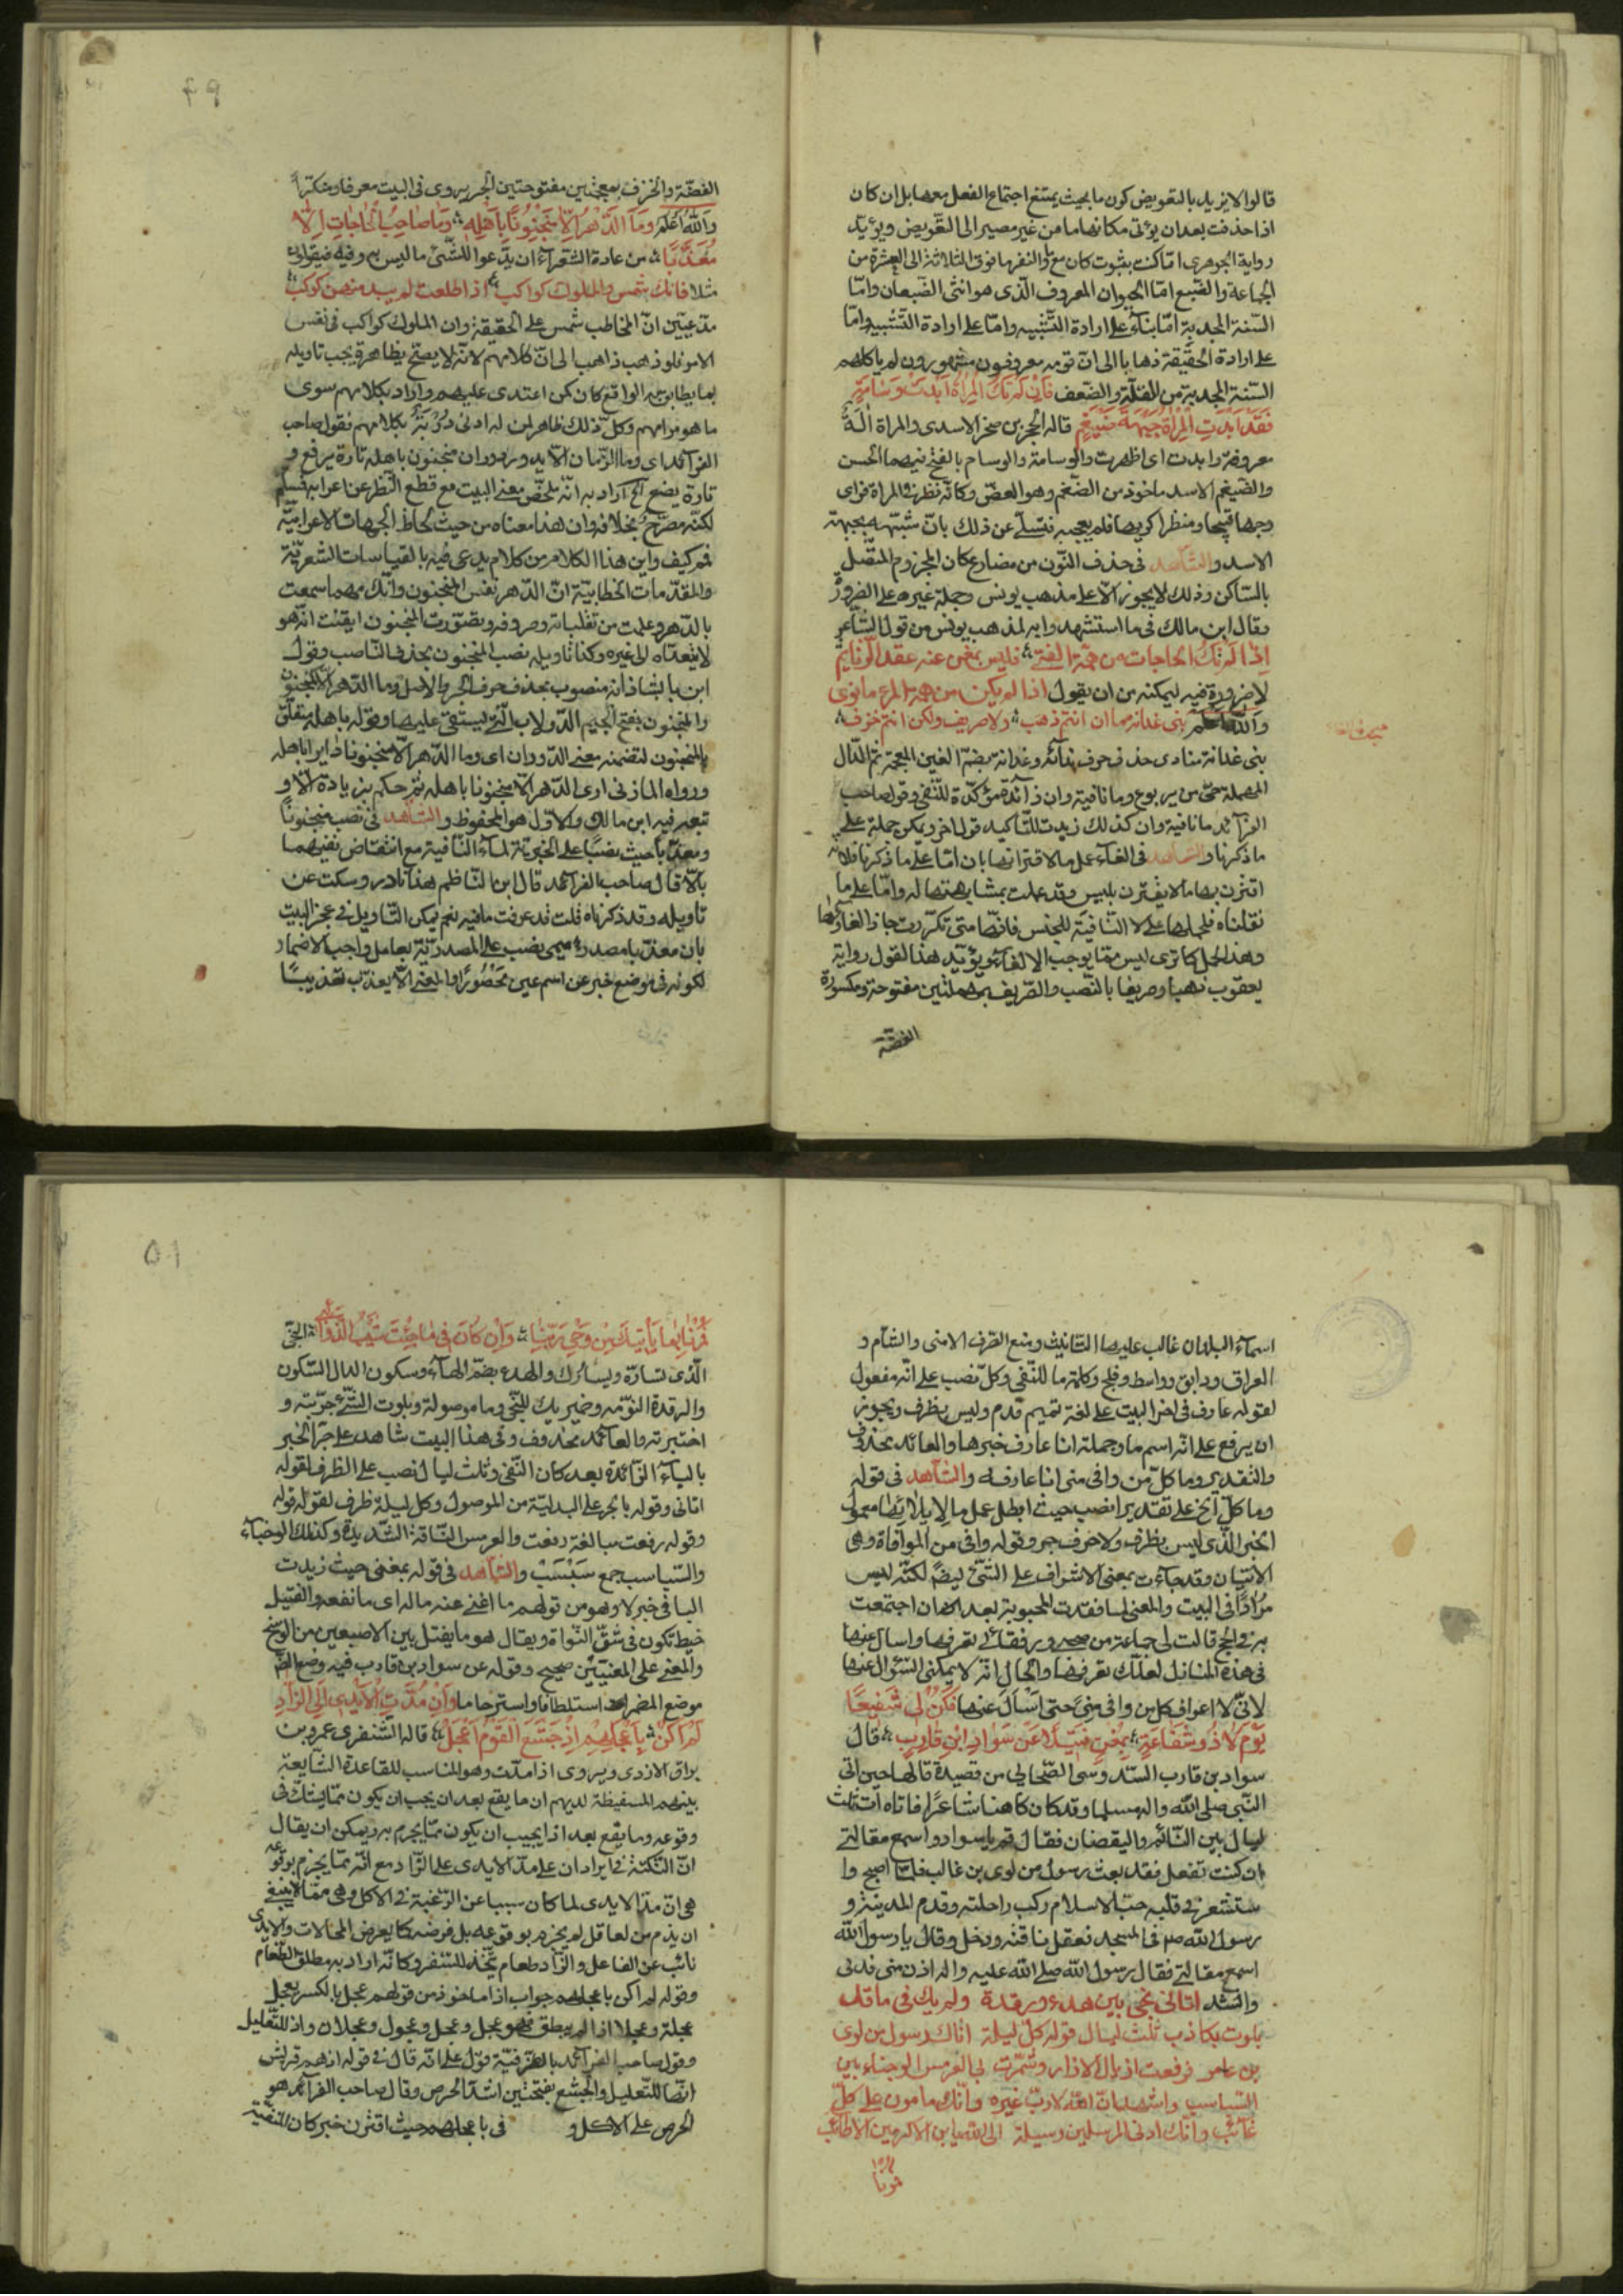 قالوا لا نريد بالتعويض كون ما بحيث يمتنع اجتماع الفعل معها بل ان كان
اذا حذفت بعد ان يؤتى مكانها ما من غير مصير الى التعويض ويؤيد
رواية الجوهرى اما كنت بثبوت كان مع والنفر ما فوق الثلاثة الى العشرة من
الجماعة والضبع اما الحيوان المعروف الذى هو انثى الضبعان واما
السنة المجدبة اما بناء على ارادة التشبيه واما على ارادة التشبيه واما
على ارادة الحقيقة ذهابا الى ان قومه معروفون مشهورون لم ياكلهم
السنة المجدبة من القلة والضعف فان لم تك المرآة ابدت وسامة
فقد ابدت المرآة جبهة ضيغم قاله الخنجر بن صخر الاسدى والمرآة آلة
معروفة وابدت اى اظهرت والوسامة والوسام بالفتح فيهما الحسن
والضيغم الاسد ماخوذ من الضغم وهو العض وكانه نظر فى المرآة فراى
وجها قبيحا ومنظرا كريها فلم يعجبه فتسلى عن ذلك بان شبهه بجبهة
الاسد والشاهد فى حذف النون من مضارع كان المجزوم المتصل
بالساكن وذلك لا يجوز الا على مذهب يونس وحمله غيره على الضرورة
وقال ابن مالك فى ما استشهدوا به لمذهب يونس من قول الشاعر
اذا لم تك الحاجات من همة الفتى فليس بمغن عنه عقد الرتايم
لا ضرورة فيه ليمكنه من ان يقول اذا لم يكن من همة المرء ما نوى
والله اعلم بنى غدانة ما ان انتم ذهب ولا صريف ولكن انتم خزف
بنى غدانة منادى حذف حرف ندائه وغدانة بضم الغين المعجمة ثم الدال
المهملة حى من يربوع وما نافية وان زائدة مؤكدة للنفى وقول صاحب
الفرائد ما نافية وان كذلك زيدت للتاكيد قول اخر ويمكن حمله على
ما ذكرنا والشاهد فى الغاء عمل ما لاقترانها بان اما على ما ذكرنا فلانه
اقترن بها ما لا يقترن بليس وقد عملت بمشابهتها له واما على ما
نقلناه فلحملها على لا النافية للجنس فانها متى تكررت جاز الغاؤها
وهذا الحمل كما ترى ليس مما يوجب الالغاء ويؤيد هذا القول رواية
يعقوب ذهبا وصريفا بالنصب والصريف بمهملتين مفتوحة ومكسورة
الفضة
٤٩
الفضة والخزف بمعجمتين مفتوحتين الجر يروى فى البيت معرفا ومنكرا
والله اعلم وما الدهر الا منجنونا باهله وما صاحب الحاجات الا
معذبا من عادة الشعراء ان يدعوا للشئ ما ليس هو فيه فيقولون
مثلا فانك شمس والملوك كواكب اذا طلعت لم يبد منهن كوكب
مدعيين ان المخاطب شمس على الحقيقة وان الملوك كواكب فى نفس
الامر فلو ذهب ذاهب الى ان كلامهم لانه لا يصح بظاهره يجب تاويله
بما يطابق به الواقع كان كمن اعتدى عليهم واراد بكلامهم سوى
ما هو مرامهم وكل ذلك ظاهر لمن له ادنى دربة بكلامهم فقول صاحب
الفرائد اى وما الزمان الا يدور دوران منجنون باهله تارة يرفع و
تارة يضع الخ اراد به انه ملخص معنى البيت مع قطع النظر عن اعرابه فسلم
لكنه مصرح بخلافه وان هذا معناه من حيث لحاظ الجهات الاعرابية
فهو كيف واين هذا الكلام من كلام يدعى فيه بالقياسات الشعرية
والمقدمات الخطابية ان الدهر نفس المنجنون وانك مهما سمعت
بالدهر وعلمت من تقلباته وصروفه وتصورت المنجنون ايقنت انه هو
لا يتعداه الى غيره وكذا تاويله بنصب المنجنون بحذف الناصب وقول
ابن بابشاذ انه منصوب بحذف حرف الجر والاصل وما الدهر الا كمنجنون
والمنجنون بفتح الجيم الدولاب التى يستقى عليها وقوله باهله متعلق
بالمنجنون لتضمنه معنى الدوران اى وما الدهر الا منجنونا دايرا باهله
ورواه المازنى ارى الدهر الا منجنونا باهله ثم حكم بزيادة الا و
تبعه فيه ابن مالك والاول هو المحفوظ والشاهد فى نصب منجنونا
ومعذبا حيث نصبا على الخبرية لماء النافية مع انتقاض نفيهما
بالا قال صاحب الفرائد قال ابن الناظم هذا نادر وسكت عن
تاويله وقد ذكرناه قلت قد عرفت ما فيه نعم يمكن التاويل فى عجز البيت
بان معذبا مصدر ميمى نصب على المصدرية بعامل واجب الاضمار
لكونه فى موضع خبر عن اسم عين محصورا والمعنى الا يعذب تعذيبا
اسماء البلدان غالب عليها التانيث ومنع الصرف الا منى والشام و
العراق ودابق وواسط وفلج وكلمة ما للنفى وكل نصب على انه مفعول
لقوله عارف فى اخر البيت على لغة تميم قدم وليس بظرف ويجوز
ان يرفع على انه اسم ما وجملة انا عارف خبرها والعائد محذوف
والتقدير وما كل من وافى منى انا عارفه والشاهد فى قوله
وما كل الخ على تقدير النصب حيث ابطل عمل ما لايلائها معمول
الخبر الذى ليس بظرف ولا حرف جر وقوله وافى من الموافاة وهى
الاتيان وقد جاءت بمعنى الاشراف على الشئ ايضا لكنه ليس
مرادا فى البيت والمعنى لما فقدت المحبوبة بعد ان اجتمعت
به فى الحج قالت لى جماعة من رفقائى تعرفها واسال عنها
فى هذه المنازل لعلك تعرفها والحال انه لا يمكننى السؤال عنها
لانى لا اعرف كل من وافى منى حتى اسال عنها فكن لى شفيعا
يوم لا ذو شفاعة بمغن فتيلا عن سواد ابن قارب قال
سواد بن قارب السدوسى الصحابى من قصيدة قالها حين اتى
النبى صلى الله واله مسلما وقد كان كاهنا شاعرا فاتاه آت ثلث
ليال بين النائم واليقضان فقال قم يا سواد واسمع مقالتى
ان كنت تفعل فقد بعث رسول من لوى بن غالب فلما اصبح وا
ستشعر فى قلبه حب الاسلام ركب راحلته وقدم المدينة و
رسول الله صلم فى المسجد فعقل ناقته ودخل وقال يا رسول الله
اسمع مقالتى فقال رسول الله صلى الله عليه واله ادن منى فدنى
وانشد اتانى نجى بين هدء ورقدة ولم يك فى ما قد
بلوت بكاذب ثلث ليال قوله كل ليلة اتاك رسول من لوى
بن غامر فرفعت اذيال الازار وشمرت بى العرمس الوجناء بين
السباسب واشهد ان الله لا رب غيره وانك مامون على كل
غائب وانك ادنى المرسلين وسيلة الى الله يا ابن الاكرمين الاطائب
فمرنا
٥١
فمرنا بما ياتيك من وحى ربنا وان كان فى ما جئت شيب الذوائب النجى
الذى تساره ويسارك والهدء بضم الهاء وسكون الدال السكون
والرقدة النومة وضمير يك للنجى وما موصولة وبلوت الشئ جربته و
اختبرته والعائد محذوف وفى هذا البيت شاهد على جر الخبر
بالباء الزائدة بعد كان النفى وثلث ليال نصب على الظرف لقوله
اتانى وقوله بالجر على البدلية من الموصول وكل ليلة ظرف لقوله قوله
وقوله رفعت مبالغة دفعت والعرمس الناقة الشديدة وكذلك الوجناء
والسباسب جمع سبسب والشاهد فى قوله بمغنى حيث زيدت
البا فى خبر لا وهو من قولهم ما اغنى عنه ماله اى ما نفعه والفتيل
خيط تكون فى شق النواة ويقال هو ما يفتل بين الاصبعين من الوسخ
والمعنى على المعنيين صحيح وقوله عن سواد بن قارب فيه وضع الظ
موضع المضمر استعطافا واسترحاما وان مدت الايدى الى الزاد
لم اكن باعجلهم اذ جشع القوم اعجل قاله الشنفرى عمرو بن
براق الازدى ويروى اذا مدت وهو المناسب للقاعدة الشايعة
بينهم المستفيظة لديهم ان ما يقع بعد ان يجب ان يكون مما يشك فى
وقوعه وما يقع بعد اذا يجب ان يكون مما يجزم به ويمكن ان يقال
ان النكتة فى ايراد ان على مد الايدى على الزاد مع انه مما يجزم بوقوعه
هى ان مد الايدى لما كان سببا عن الرغبة فى الاكل وهى مما لا ينبغى
ان يذم من لعاقل لم يجزم بوقوعه بل فرضه كما يعرض المحالات والايدى
نائب عن الفاعل والزاد طعام يتخذ للسفر وكانه اراد به مطلق الطعام
وقوله لم اكن باعجلهم جواب اذا ماخوذ من قولهم عجل بالكسر يعجل
عجلة وعجلا اذا لم يبطق فهو عجل وعجل وعجول وعجلان واذ للتعليل
وقول صاحب الفرائد بالظرفية قول على انه قال فى قوله اذ هم قريش
انها للتعليل والجشع بفتحتين اشد الحرص وقال صاحب الفرائد هو
الحرص على الاكل و فى باعجلهم حيث اقترن خبر كان المنفية